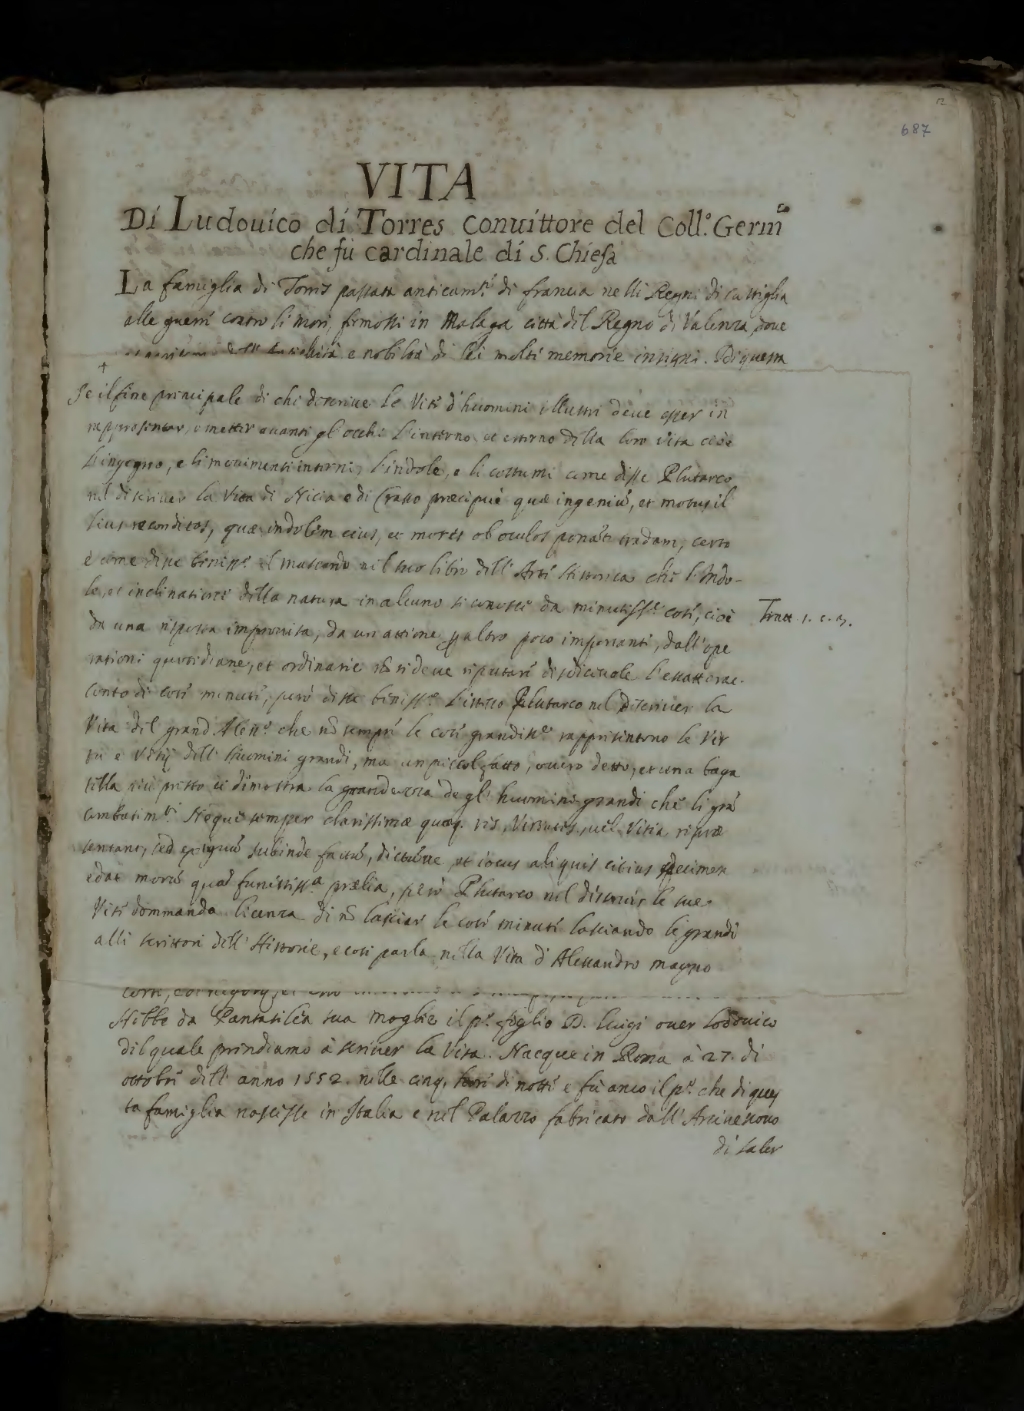 12
687
VITA
Di Ludouico di Torres conuittore del Coll.º Germ̃co
che fù cardinale di S. Chiesa
La famiglia di Torres passata anticamte di francia nelli Regni di Castiglia
alle guerre contro li mori, firmossi in Malaga città del Regno di Valenza, doue
nobiltà di lei molte memorie insigni. Di questa
+
Se il fine principale di chi descriue le Vite d'huomini illustri deue esser in
rappresentar, o metter auanti gl'occhi l'interno et esterno della loro vita cioè
l'ingegno, e li mouimenti interni, l'indole, e li costumi come disse Plutarco
nel descriuer la Vita di Nicia e di Crasso præcipuè quæ ingeniũ, et motus il
lius reconditos, quæ indolem eius, et mores ob oculos ponãt tradam, certo
è come disse benissº il Mascardi nel suo libro dell'Arte Historica che l'Indo-
le, et inclinatione della natura in alcuno si conosce da minutissᵉ cose, cioè
Tratt 1. c. 3.
da una risposta improuisa, da un attione per altro poco importante, dall'ope
rationi quotidiane, et ordinarie nõ si deue riputare disdiceuole l'esatto rac-
conto di cose minute, però disse benissº l'istesso Plutarco nel descriuer la
Vita del grand'Alessº che nõ sempre le cose grandissᵉ rappresentono le Vir
tù e Vitij dell'huomini grandi, ma un piccol fatto, ouero detto, et una baga
tella più presto ci dimostra la grandezza degl'huomini grandi che li grã
combatimti Neque semper clarissimæ quæq. res, Virtutes, uel Vitia repræ
sentant, sed exiguũ subinde factũ, dictũue et iocus aliquis citius specimen
edat morũ quàm funestissª prælia, però Plutarco nel descriuer le sue
Vite dommanda licenza di nõ lasciar le cose minute lasciando le grandi
alli scrittori dell'Historie, e così parla nella Vita d'Alessandro magno
Hebbe da Pantasilea sua moglie il pº figlio D. Luigi ouer Lodouico
del quale prendiamo à scriuer la Vita. Nacque in Roma à 27. di
ottobre dell'anno 1552. nelle cinq. hore di notte e fù anco il pº che di ques
ta famiglia nascesse in Italia e nel Palazzo fabricato dall'Arciuescouo
di Saler